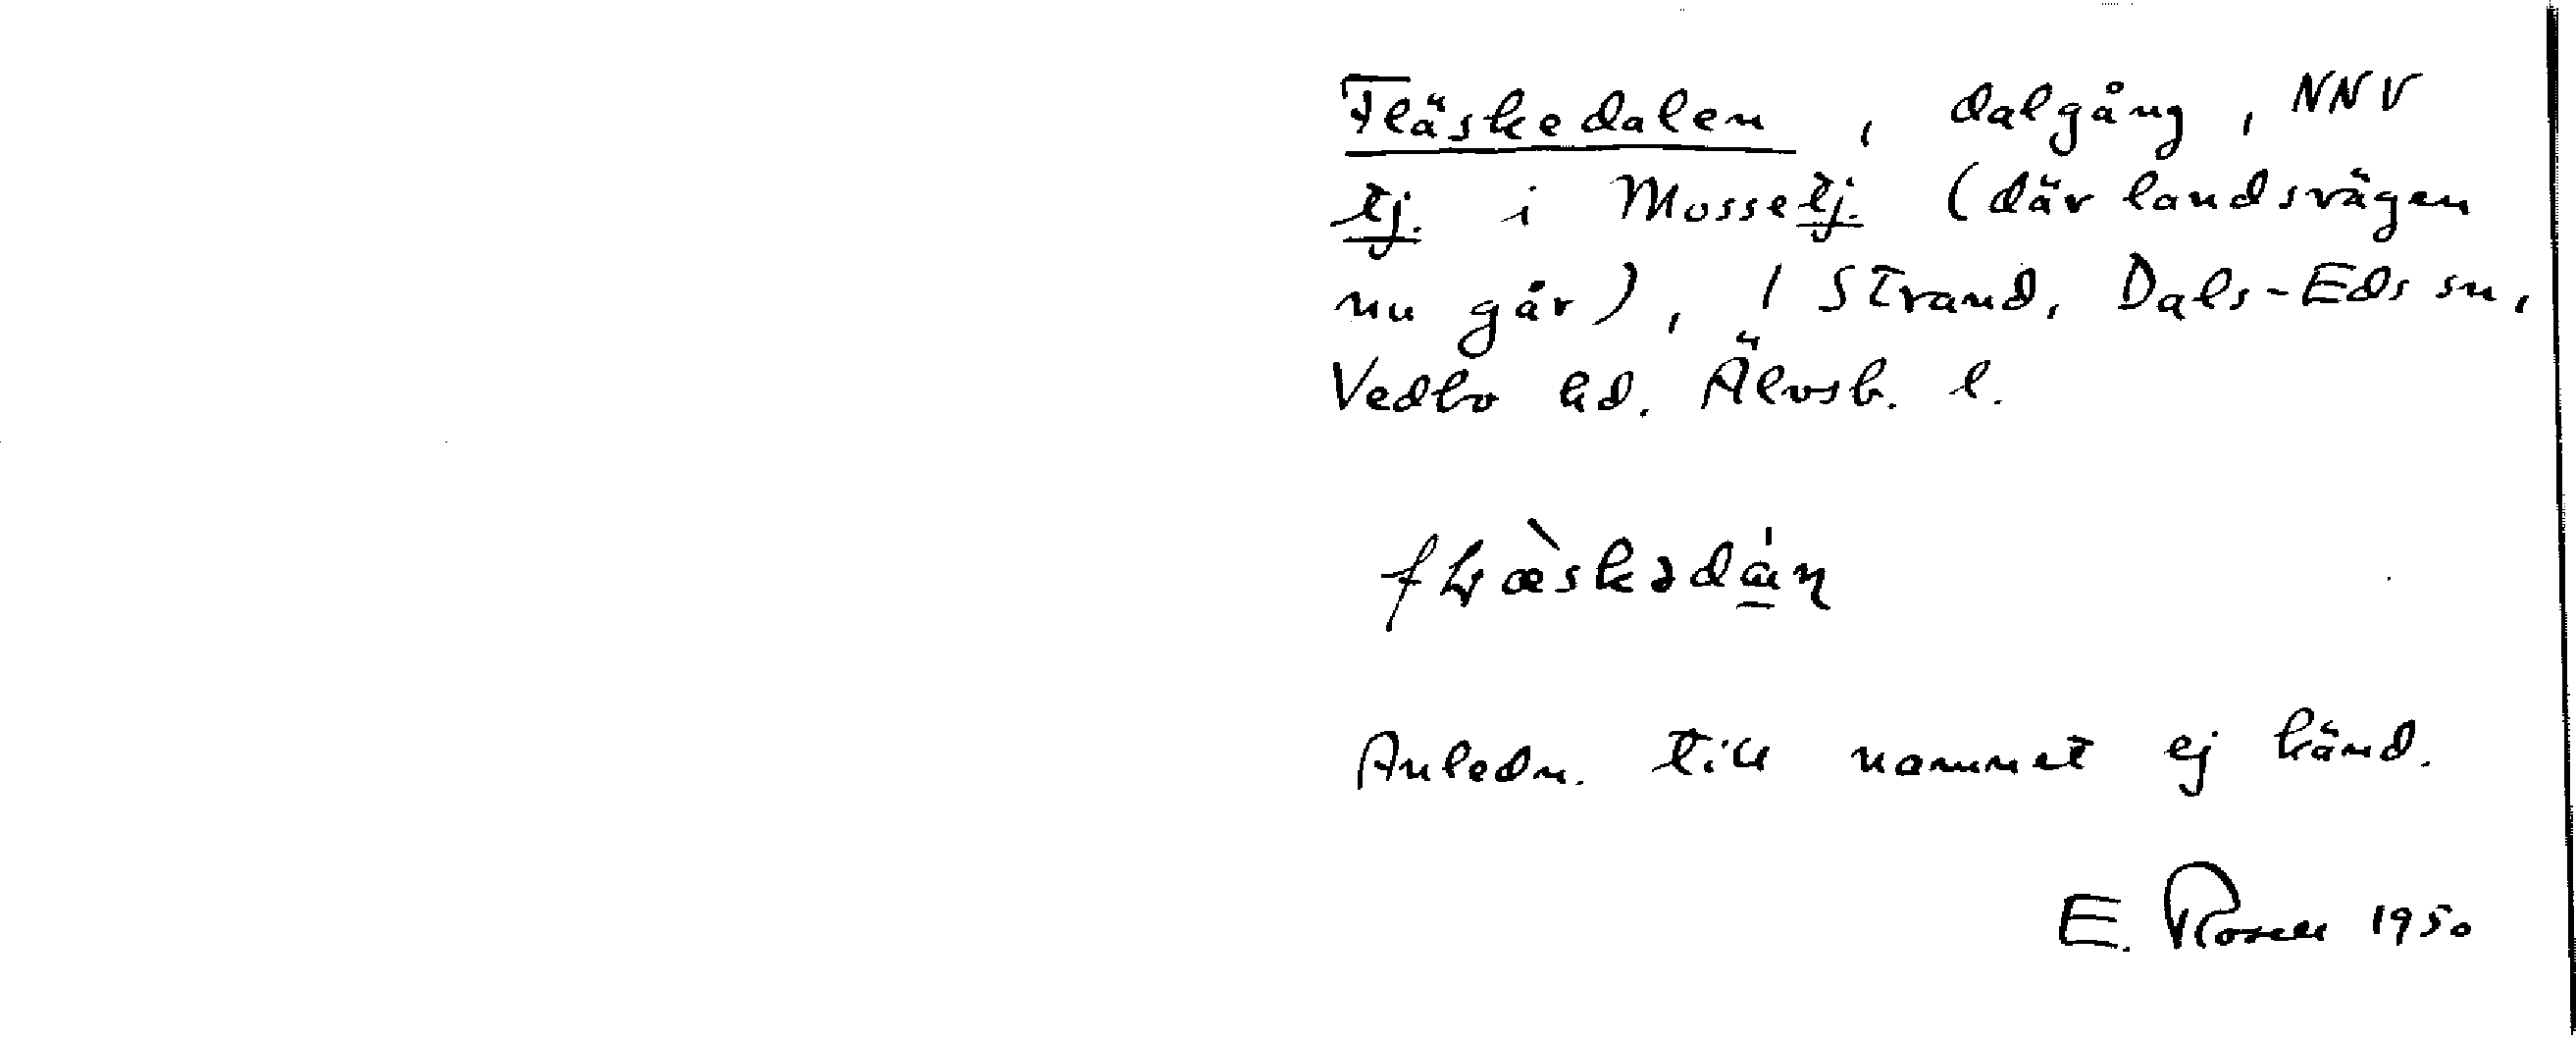 Fläskedalen, dalgång, NNV
tj. i Mossetj. (där landsvägen
nu går), 1 Strand, Dals-Eds sn,
Vedbo hd. Älvsb. l.
Anledn. till namnet ej känd.
E. Rosell 1950